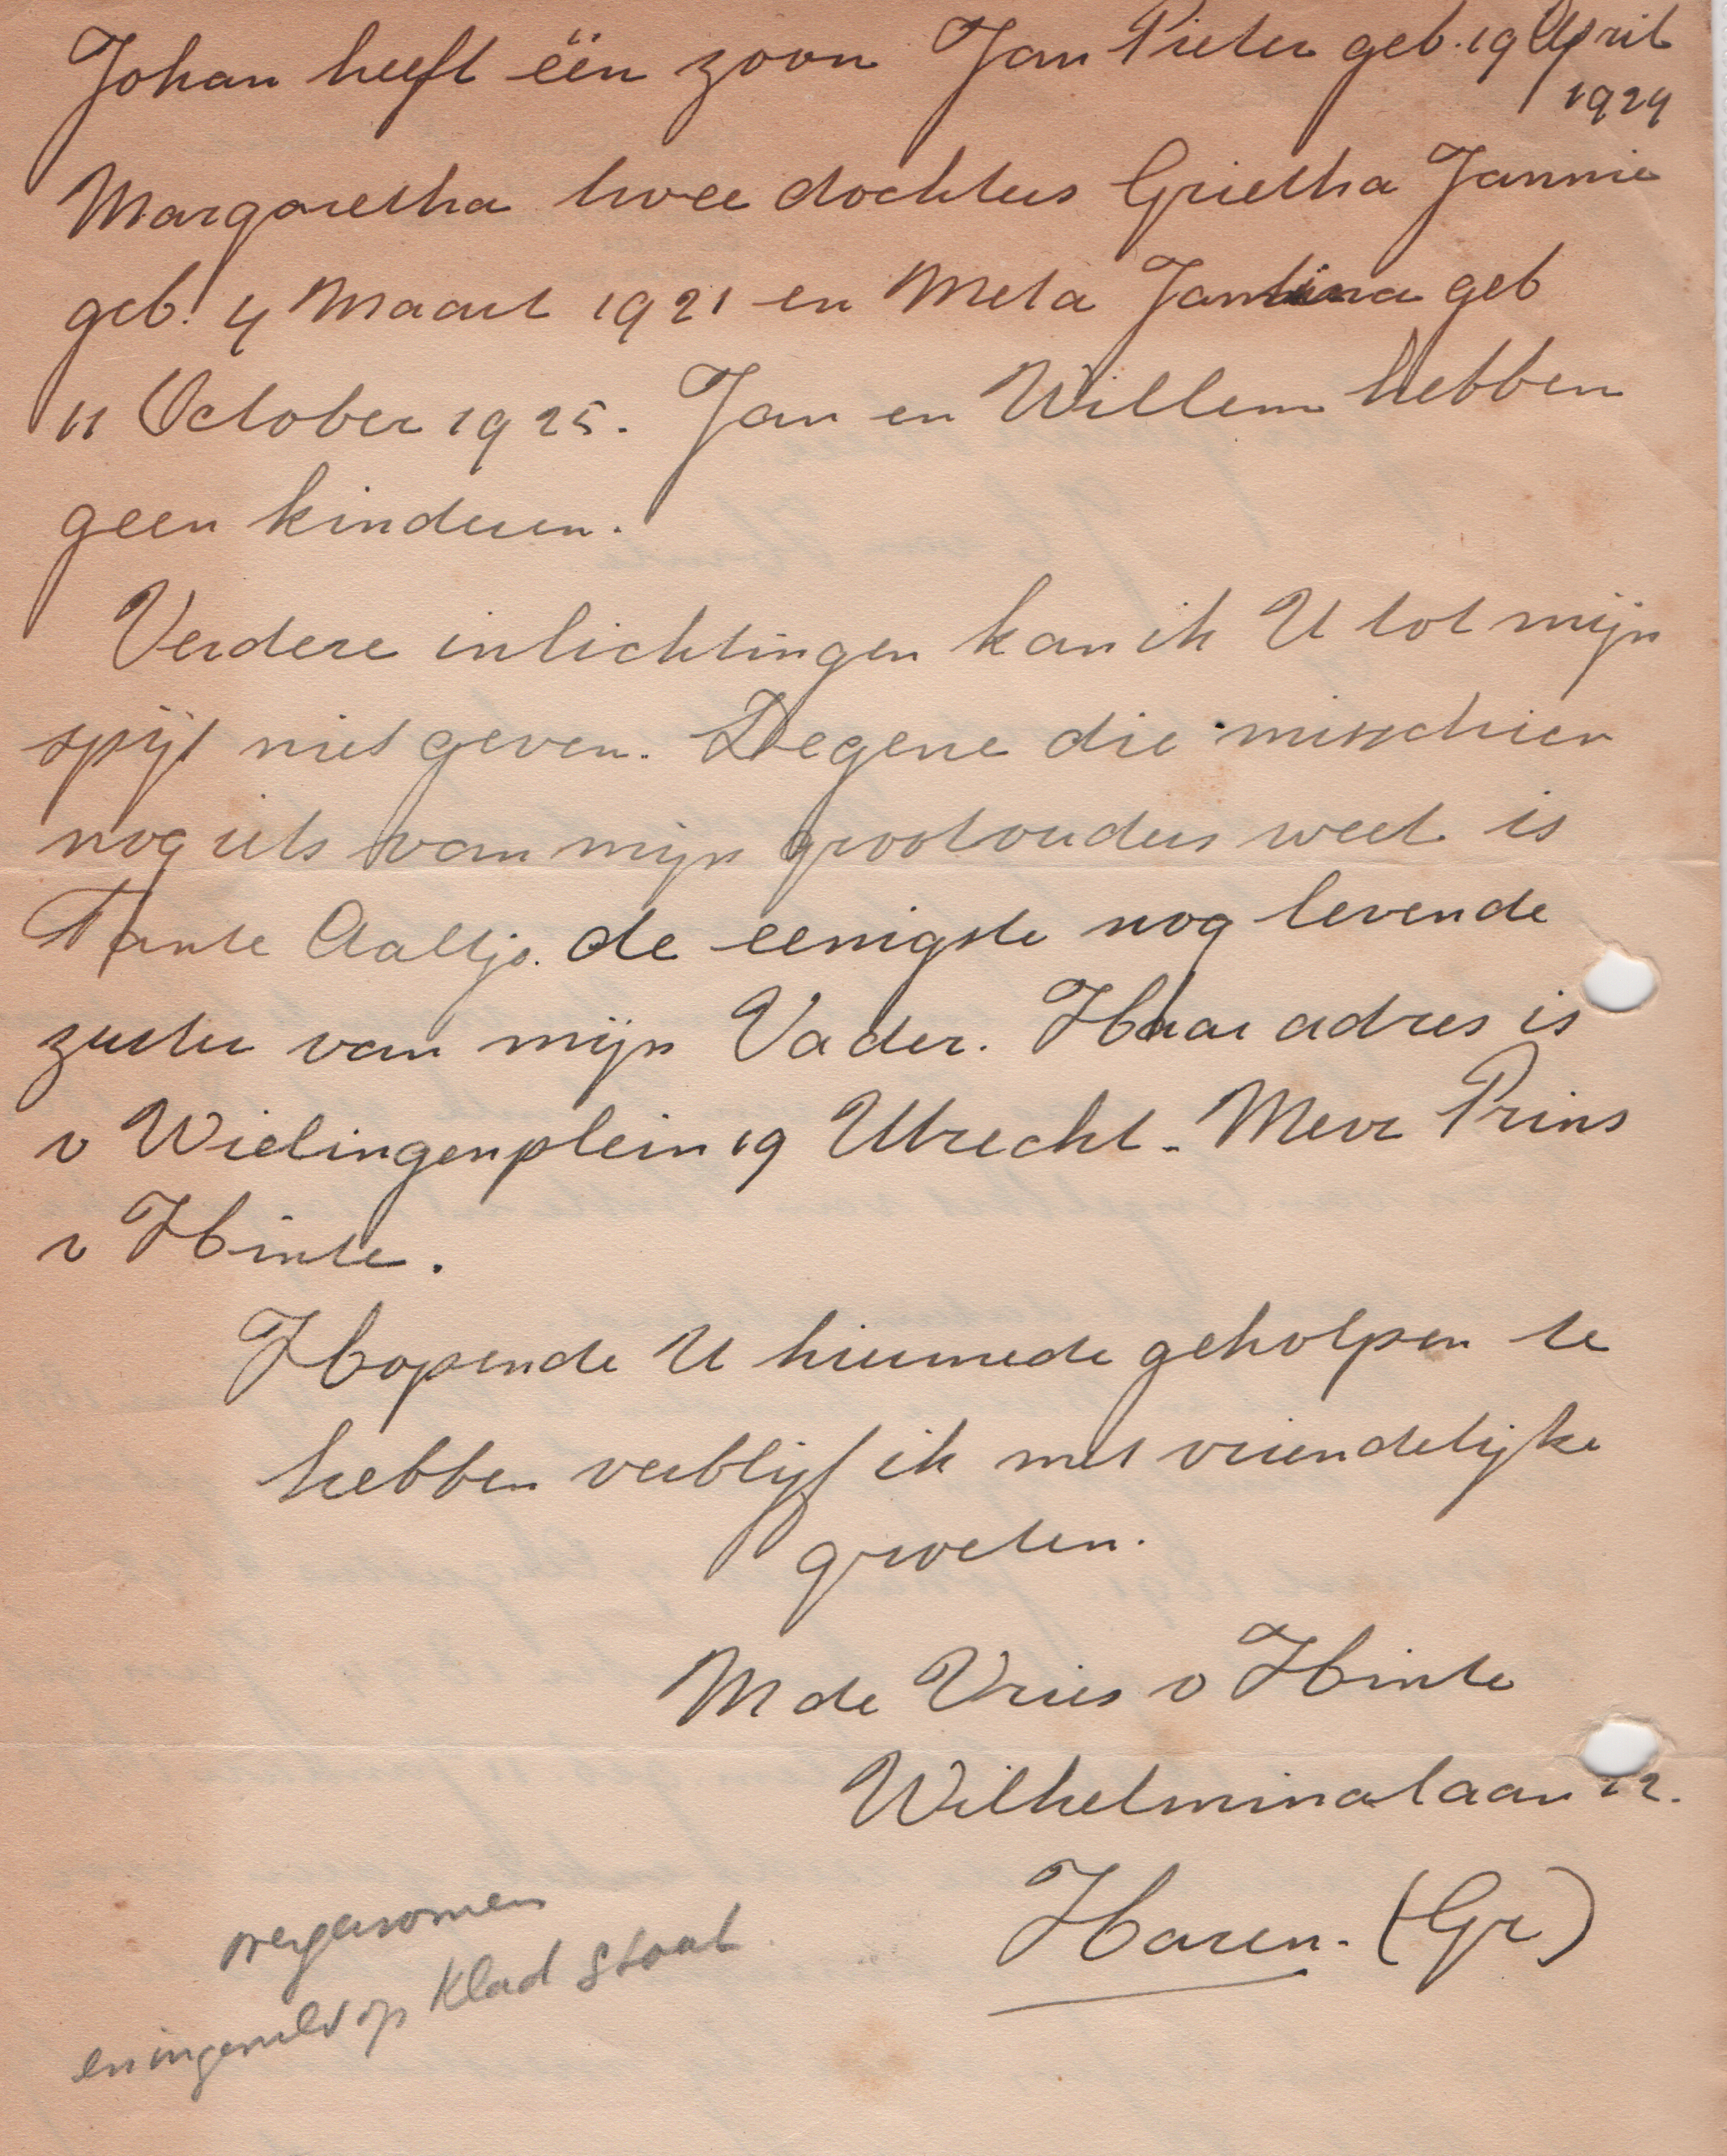 Johan heeft één zoon Jan Pieter geb. 19 April
1924
Margaretha twee dochters Grietha Jannie
geb. 4 Maart 1921 en Meta Jantina geb
11 October 1925. Jan en Willem hebben
geen kinderen.
Verdere inlichtingen kan ik U tot mijn
spijt niet geven. Degene die misschien
nog iets van mijn grootouders weet is
Tante Aaltje. de eenigste nog levende
zuster van mijn Vader. Haar adres is
v Wielingenplein 19 Utrecht. Mevr Prins
v Hinte.
Hopende U hiermede geholpen te
hebben verblijf ik met vriendelijke
groeten.
M de Vries v Hinte
Wilhelminalaan 12.
Haren. (Gr)
overgenomen
en ingevuld op Klad Staat